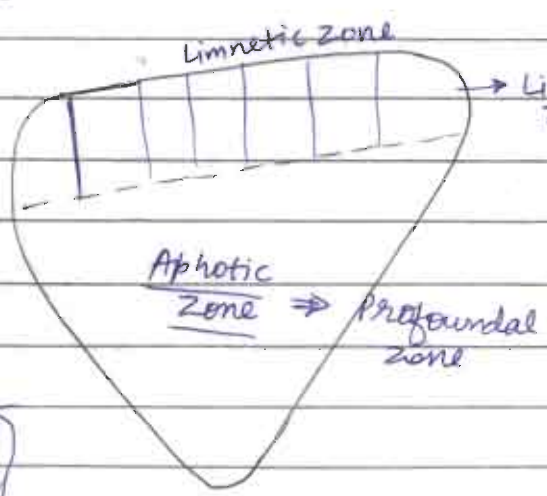 Limnetic Zone
→ Li
Aphotic
Zone ⇒ Profoundal
Zone